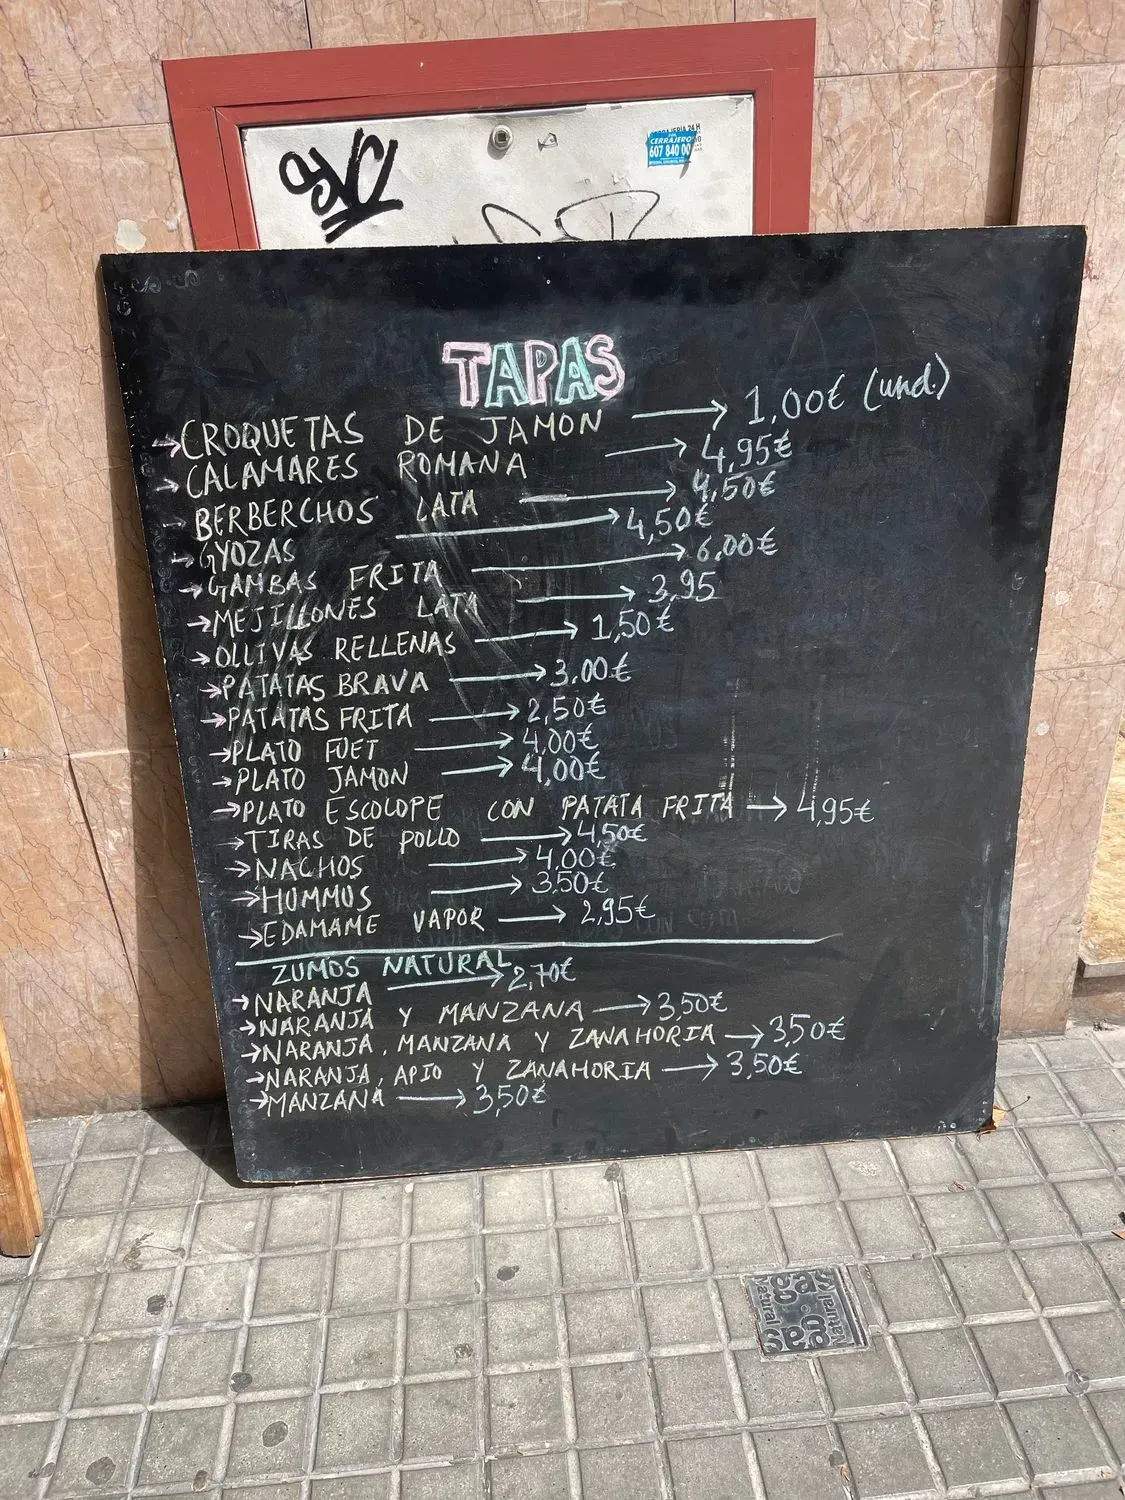 CERRAJERO
607 840 00
TAPAS
→CROQUETAS DE JAMON → 1,00€ (und.)
→CALAMARES ROMANA → 4,95€
→BERBERCHOS LATA → 4,50€
→GYOZAS → 4,50€
→GAMBAS FRITA → 6,00€
→MEJILLONES LATA → 3,95
→OLLIVAS RELLENAS → 1,50€
→PATATAS BRAVA → 3,00€
→PATATAS FRITA → 2,50€
→PLATO FUET → 4,00€
→PLATO JAMON → 4,00€
→PLATO ESCOLOPE CON PATATA FRITA → 4,95€
→TIRAS DE POLLO → 4,50€
→NACHOS → 4,00€
→HUMMUS → 3,50€
→EDAMAME VAPOR → 2,95€
ZUMOS NATURAL
→NARANJA → 2,70€
→NARANJA Y MANZANA → 3,50€
→NARANJA, MANZANA Y ZANAHORIA → 3,50€
→NARANJA, APIO Y ZANAHORIA → 3,50€
→MANZANA → 3,50€
gas
Natural